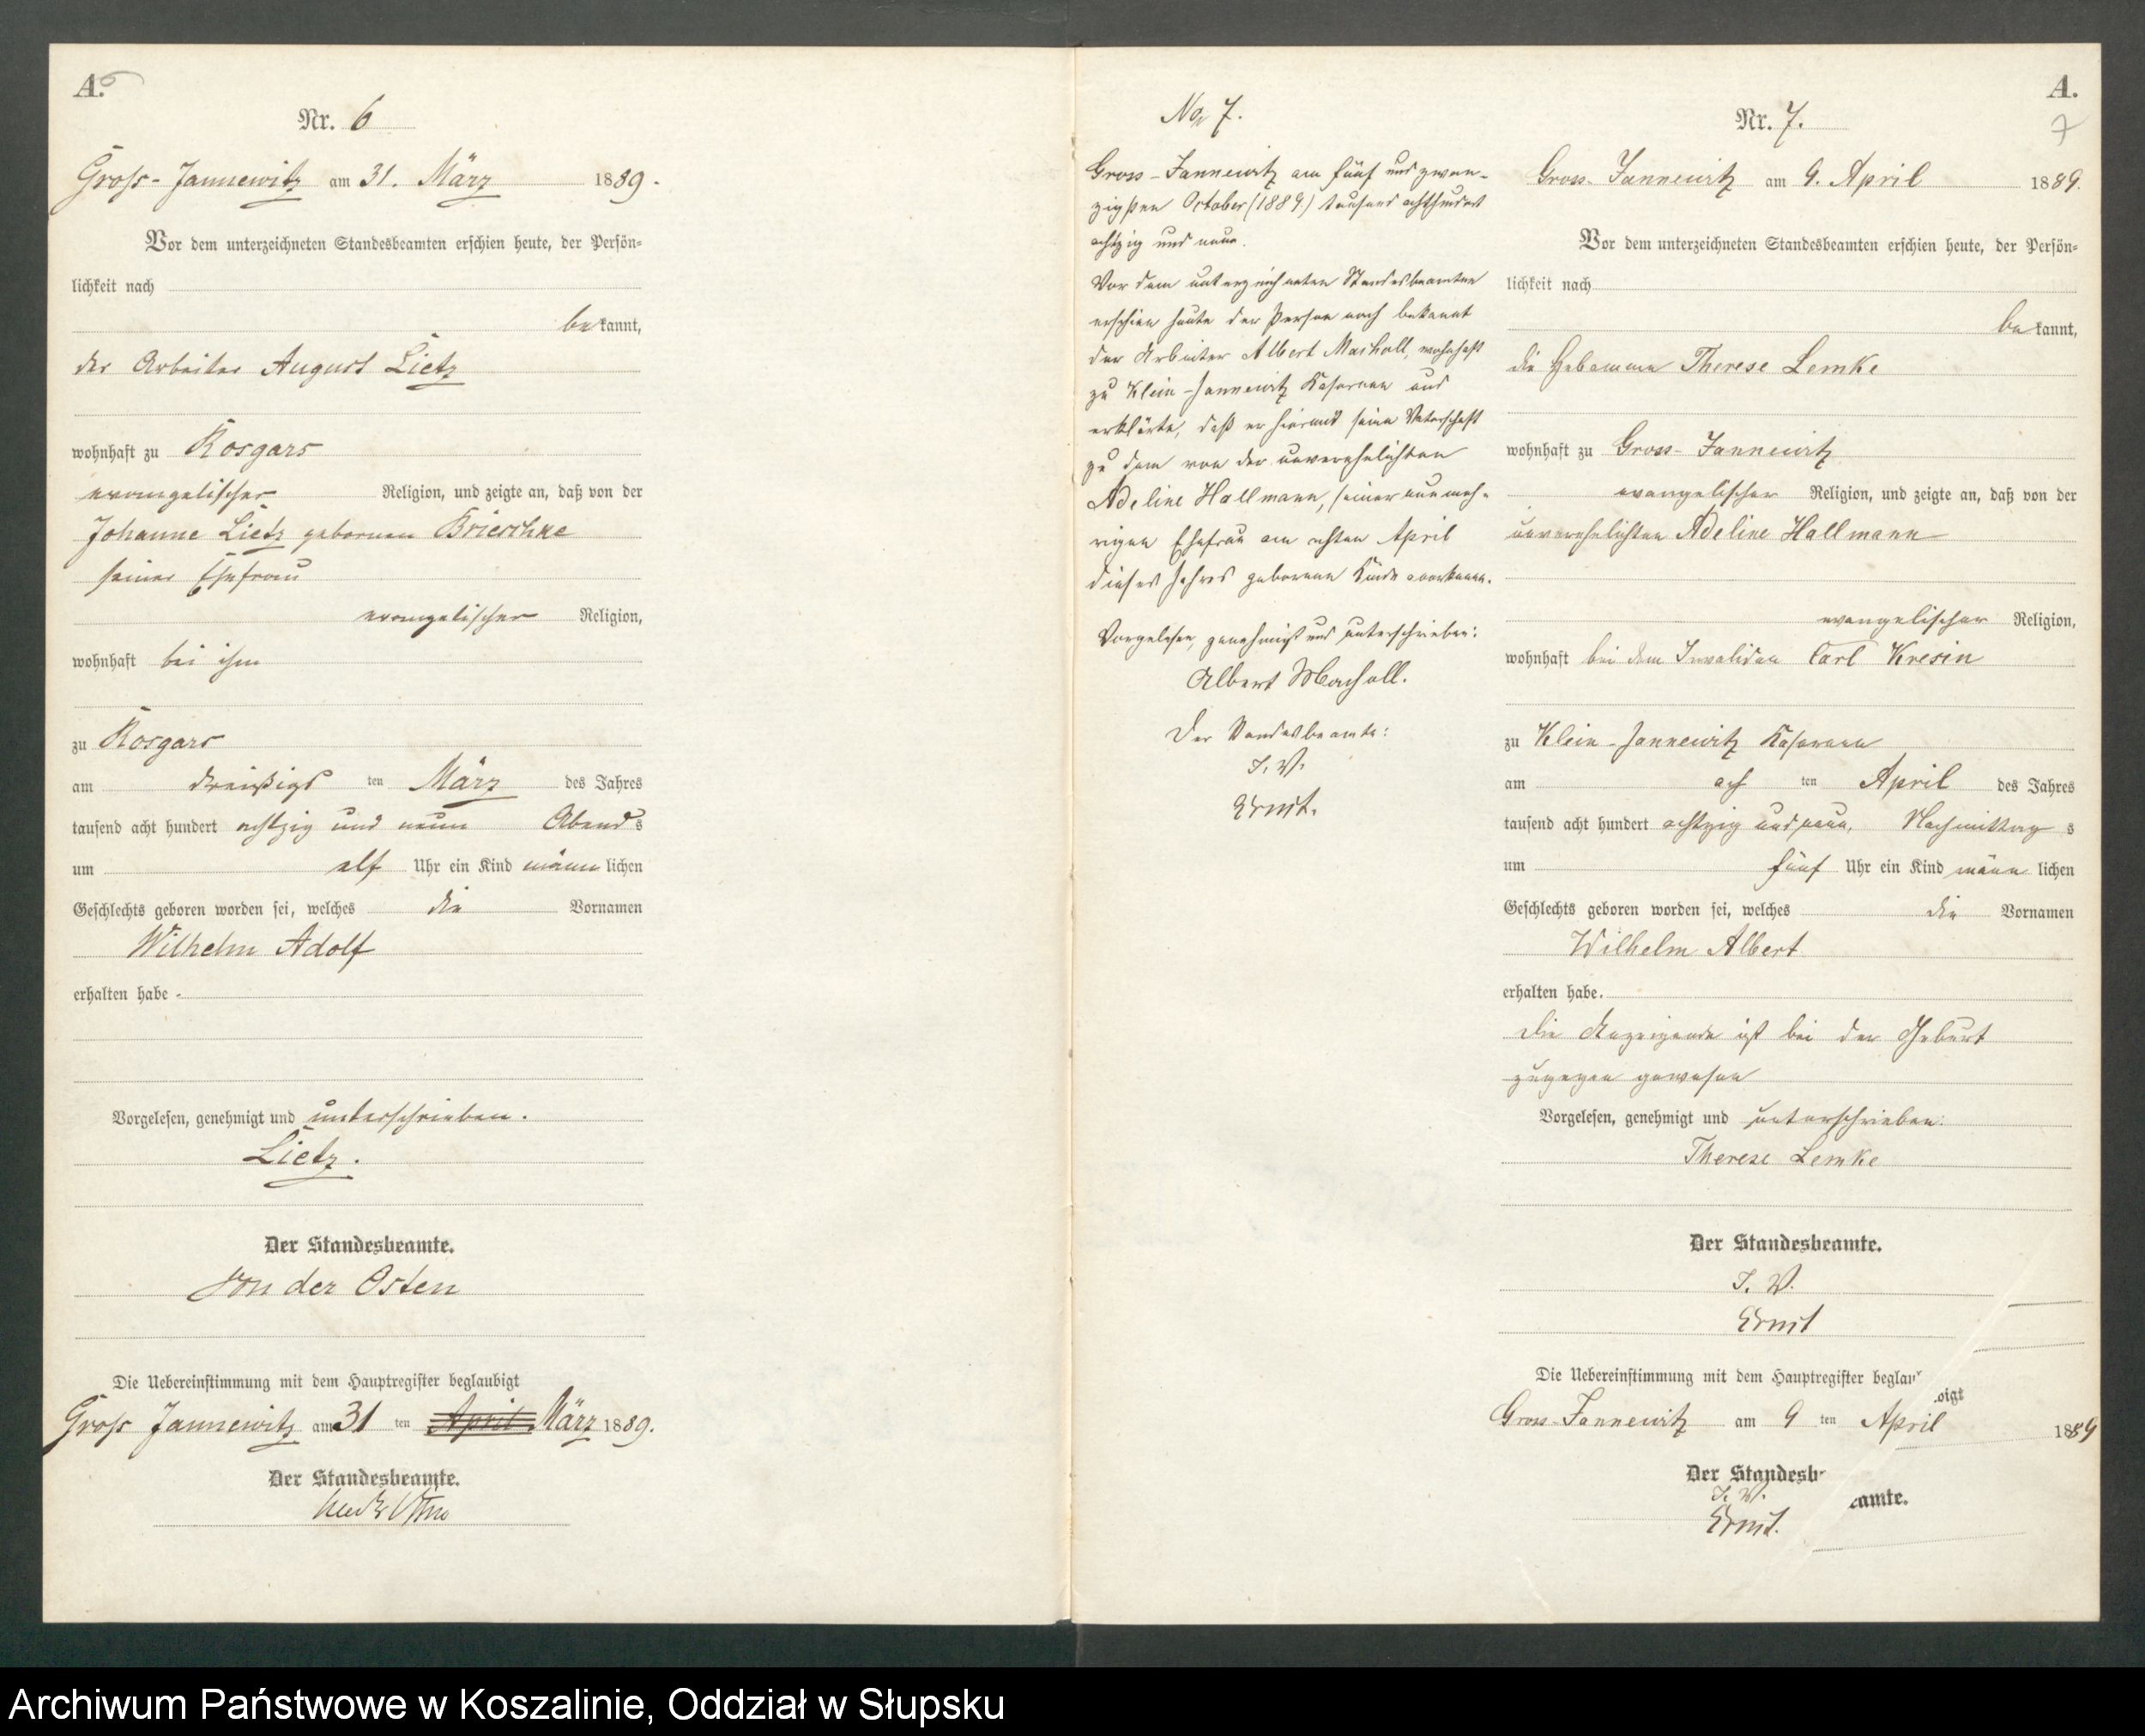 A.
6
Nr. 6
Gross-Jannewitz am 31. März 1889.
Vor dem unterzeichneten Standesbeamten erschien heute, der Persön=
lichkeit nach
bekannt,
der Arbeiter August Lietz
wohnhaft zu Rosgars
evangelischer Religion, und zeigte an, daß von der
Johanne Lietz geborenen Brieschke
seiner Ehefrau
evangelischer Religion,
wohnhaft bei ihm
zu Rosgars
am dreißigs ten März des Jahres
tausend acht hundert achtzig und neun Abends
um elf Uhr ein Kind männlichen
Geschlechts geboren worden sei, welches die Vornamen
Wilhelm Adolf
erhalten habe.
Vorgelesen, genehmigt und unterschrieben.
Lietz.
Der Standesbeamte.
von der Osten
Die Uebereinstimmung mit dem Hauptregister beglaubigt
Gross Jannewitz am 31 ten April März 1889.
Der Standesbeamte.
No 7.
Gross-Jannewitz am fünf und zwan-
zigsten October (1889) tausend achthundert
achtzig und neun.
Vor dem unterzeichneten Standesbeamten
erschien heute der Person nach bekannt
der Arbeiter Albert Machall, wohnhaft
zu Klein-Jannewitz Kasernen und
erklärte, daß er hiermit seine Vaterschaft
zu dem von der unverehelichten
Adeline Hallmann, seiner nunmeh-
rigen Ehefrau am achten April
dieses Jahres geborenen Kinde anerkenne.
Vorgelesen, genehmigt und unterschrieben:
Albert Machall.
Der Standesbeamte:
I. V.
Ernst.
A.
7
Nr. 7.
Gross-Jannewitz am 9. April 1889.
Vor dem unterzeichneten Standesbeamten erschien heute, der Persön=
lichkeit nach
bekannt,
die Hebamme Therese Lemke
wohnhaft zu Gross-Jannewitz
evangelischer Religion, und zeigte an, daß von der
unverehelichten Adeline Hallmann
evangelischer Religion,
wohnhaft bei dem Invaliden Carl Kresin
zu Klein-Jannewitz Kasernen
am ach ten April des Jahres
tausend acht hundert achtzig und neun, Nachmittags
um fünf Uhr ein Kind männlichen
Geschlechts geboren worden sei, welches die Vornamen
Wilhelm Albert
erhalten habe.
Die Anzeigende ist bei der Geburt
zugegen gewesen
Vorgelesen, genehmigt und unterschrieben:
Therese Lemke
Der Standesbeamte.
I. V.
Ernst
Die Uebereinstimmung mit dem Hauptregister beglaubigt
Gross-Jannewitz am 9 ten April 1889
Der Standesbeamte.
I. V.
Ernst.
Archiwum Państwowe w Koszalinie, Oddział w Słupsku